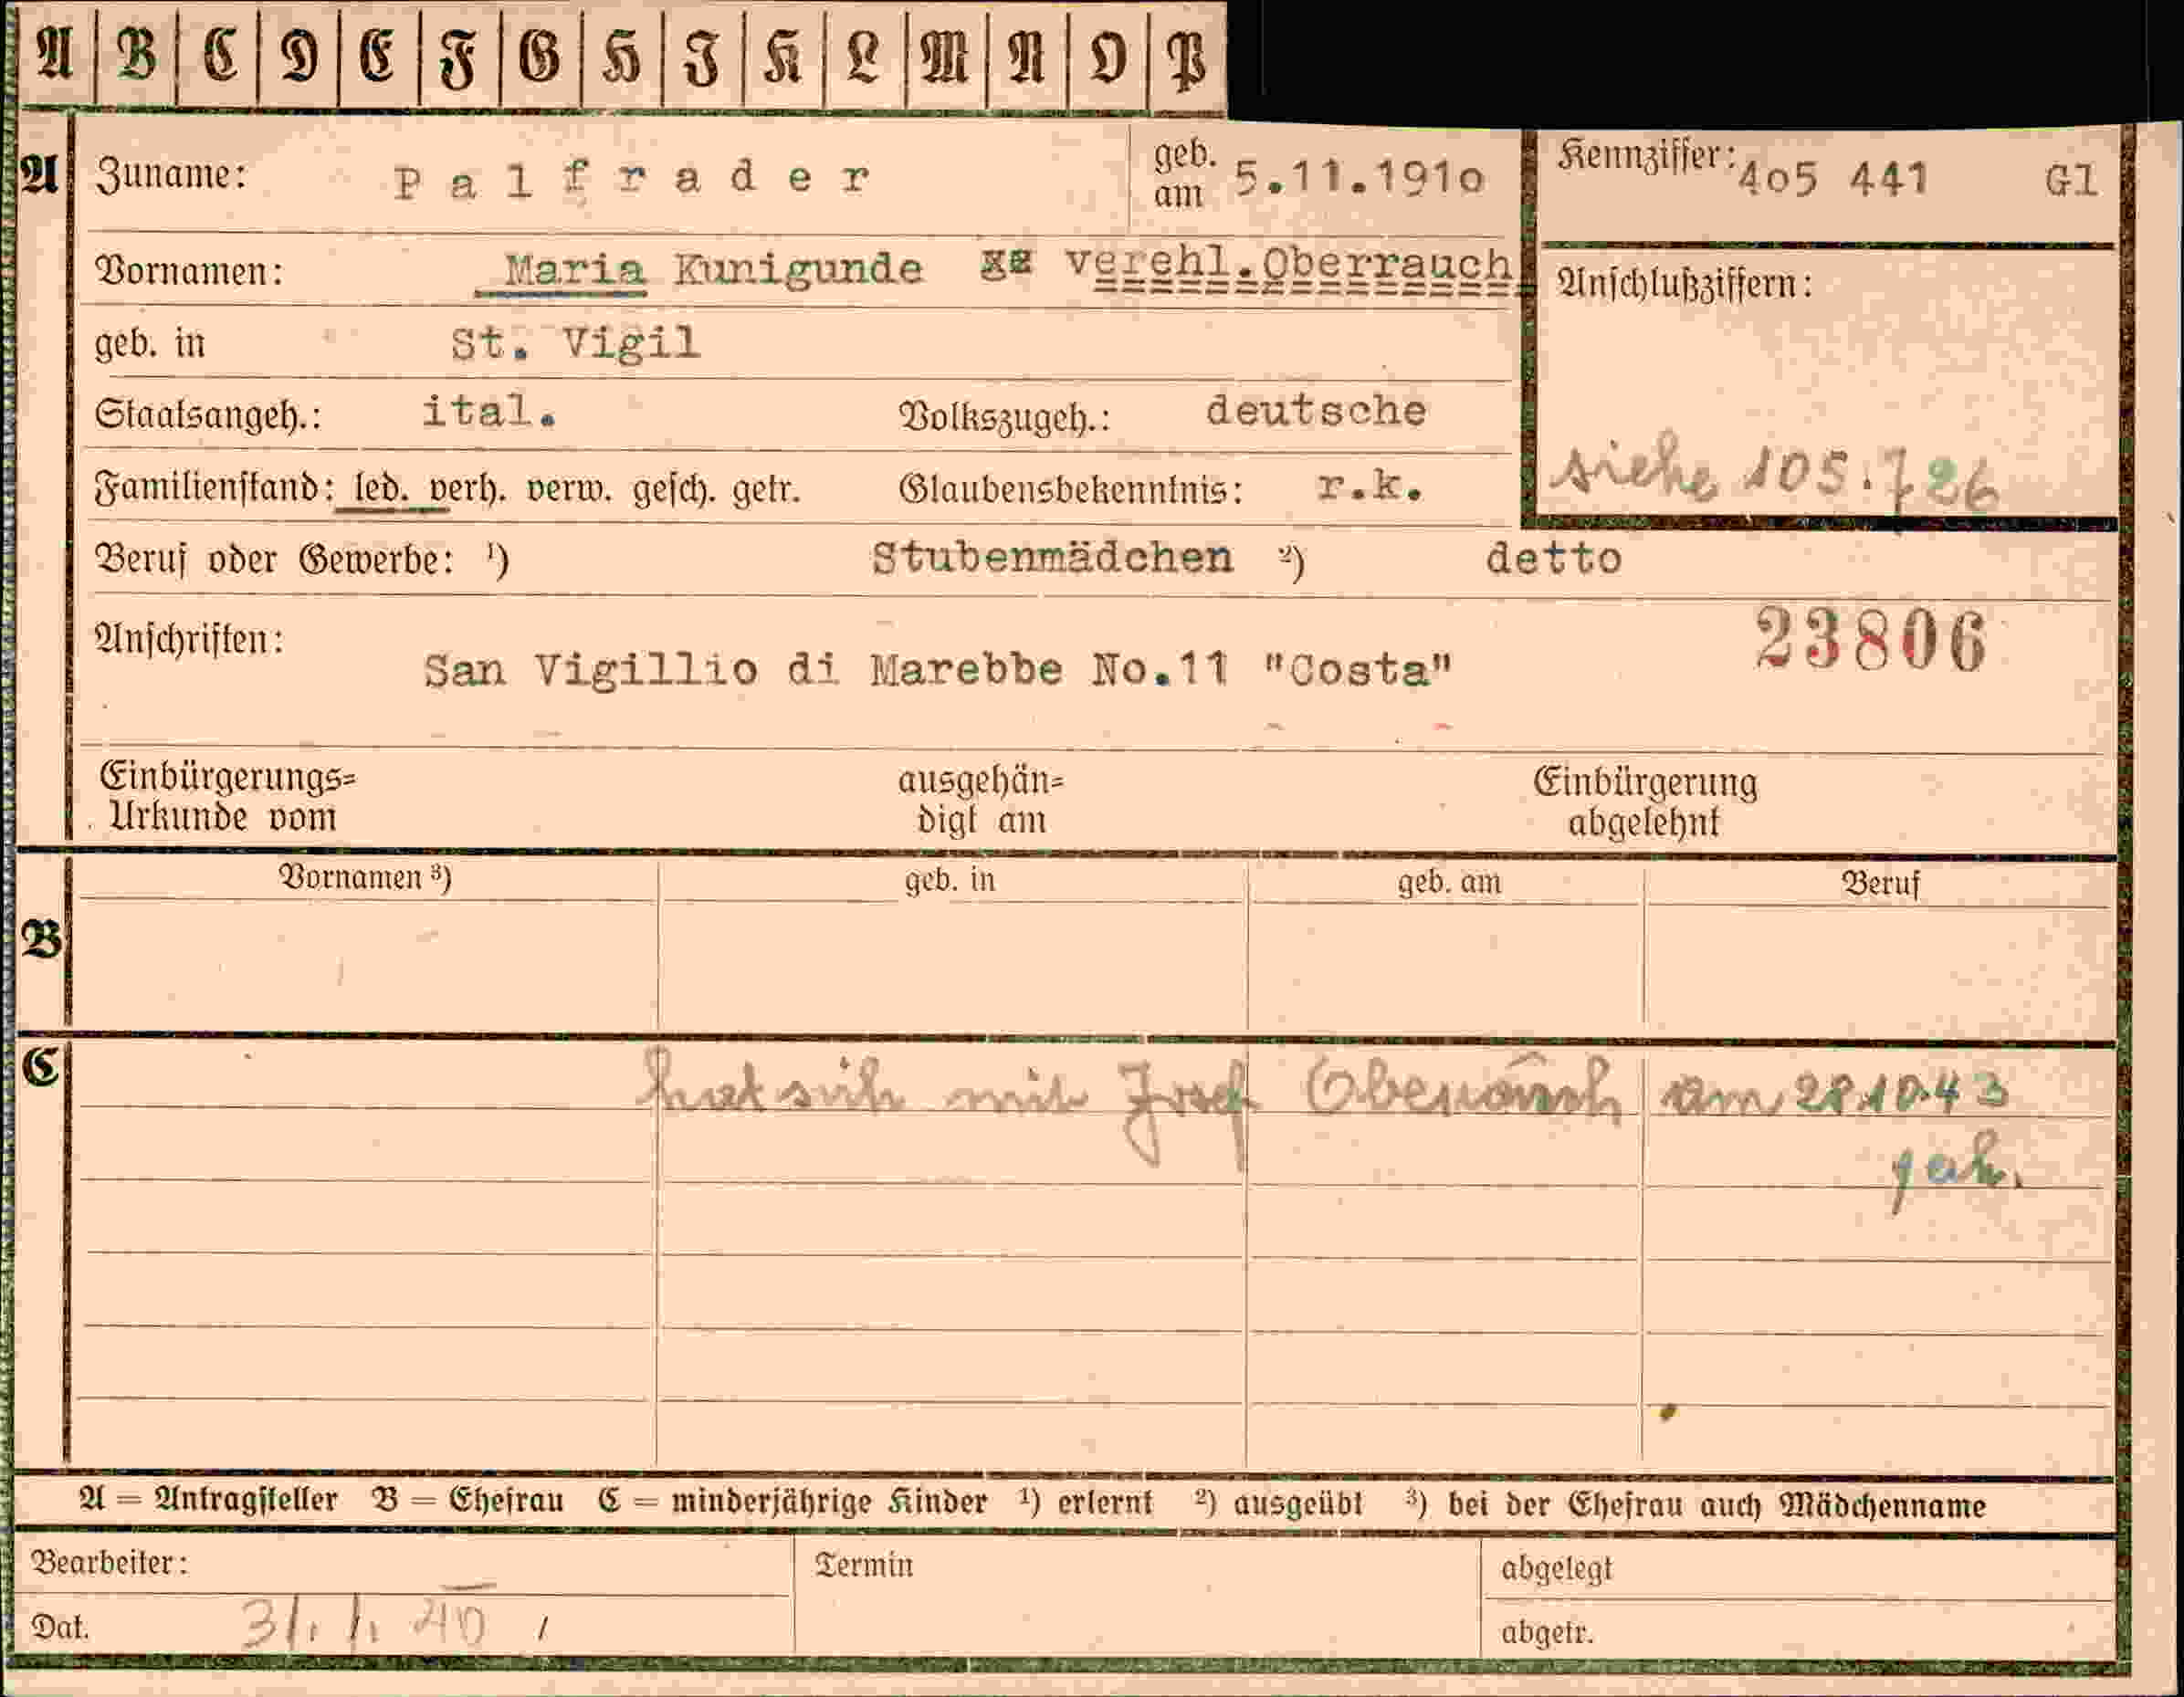 A B C D E F G H I K L M N O P
A Zuname: Palfrader geb. am 5.11.1910 Kennziffer: 4o5 441 Gl
Vornamen: Maria Kunigunde verehl.Oberrauch Anschlußziffern:
geb. in St. Vigil
Staatsangeh.: ital. Volkszugeh.: deutsche
siehe 105.726
Familienstand: led. verh. verw. gesch. getr. Glaubensbekenntnis: r.k.
Beruf oder Gewerbe: ¹) Stubenmädchen ²) detto
23806
Anschriften: San Vigillio di Marebbe No.11 "Costa"
Einbürgerungs= ausgehän= Einbürgerung
Urkunde vom digt am abgelehnt
Vornamen ³) geb. in geb. am Beruf
B
C hat sich mit Josef Oberrauch am 28.10.43
A = Antragsteller B = Ehefrau C = minderjährige Kinder ¹) erlernt ²) ausgeübt ³) bei der Ehefrau auch Mädchenname
Bearbeiter: Termin abgelegt
Dat. 31. 1. 40 abgetr.